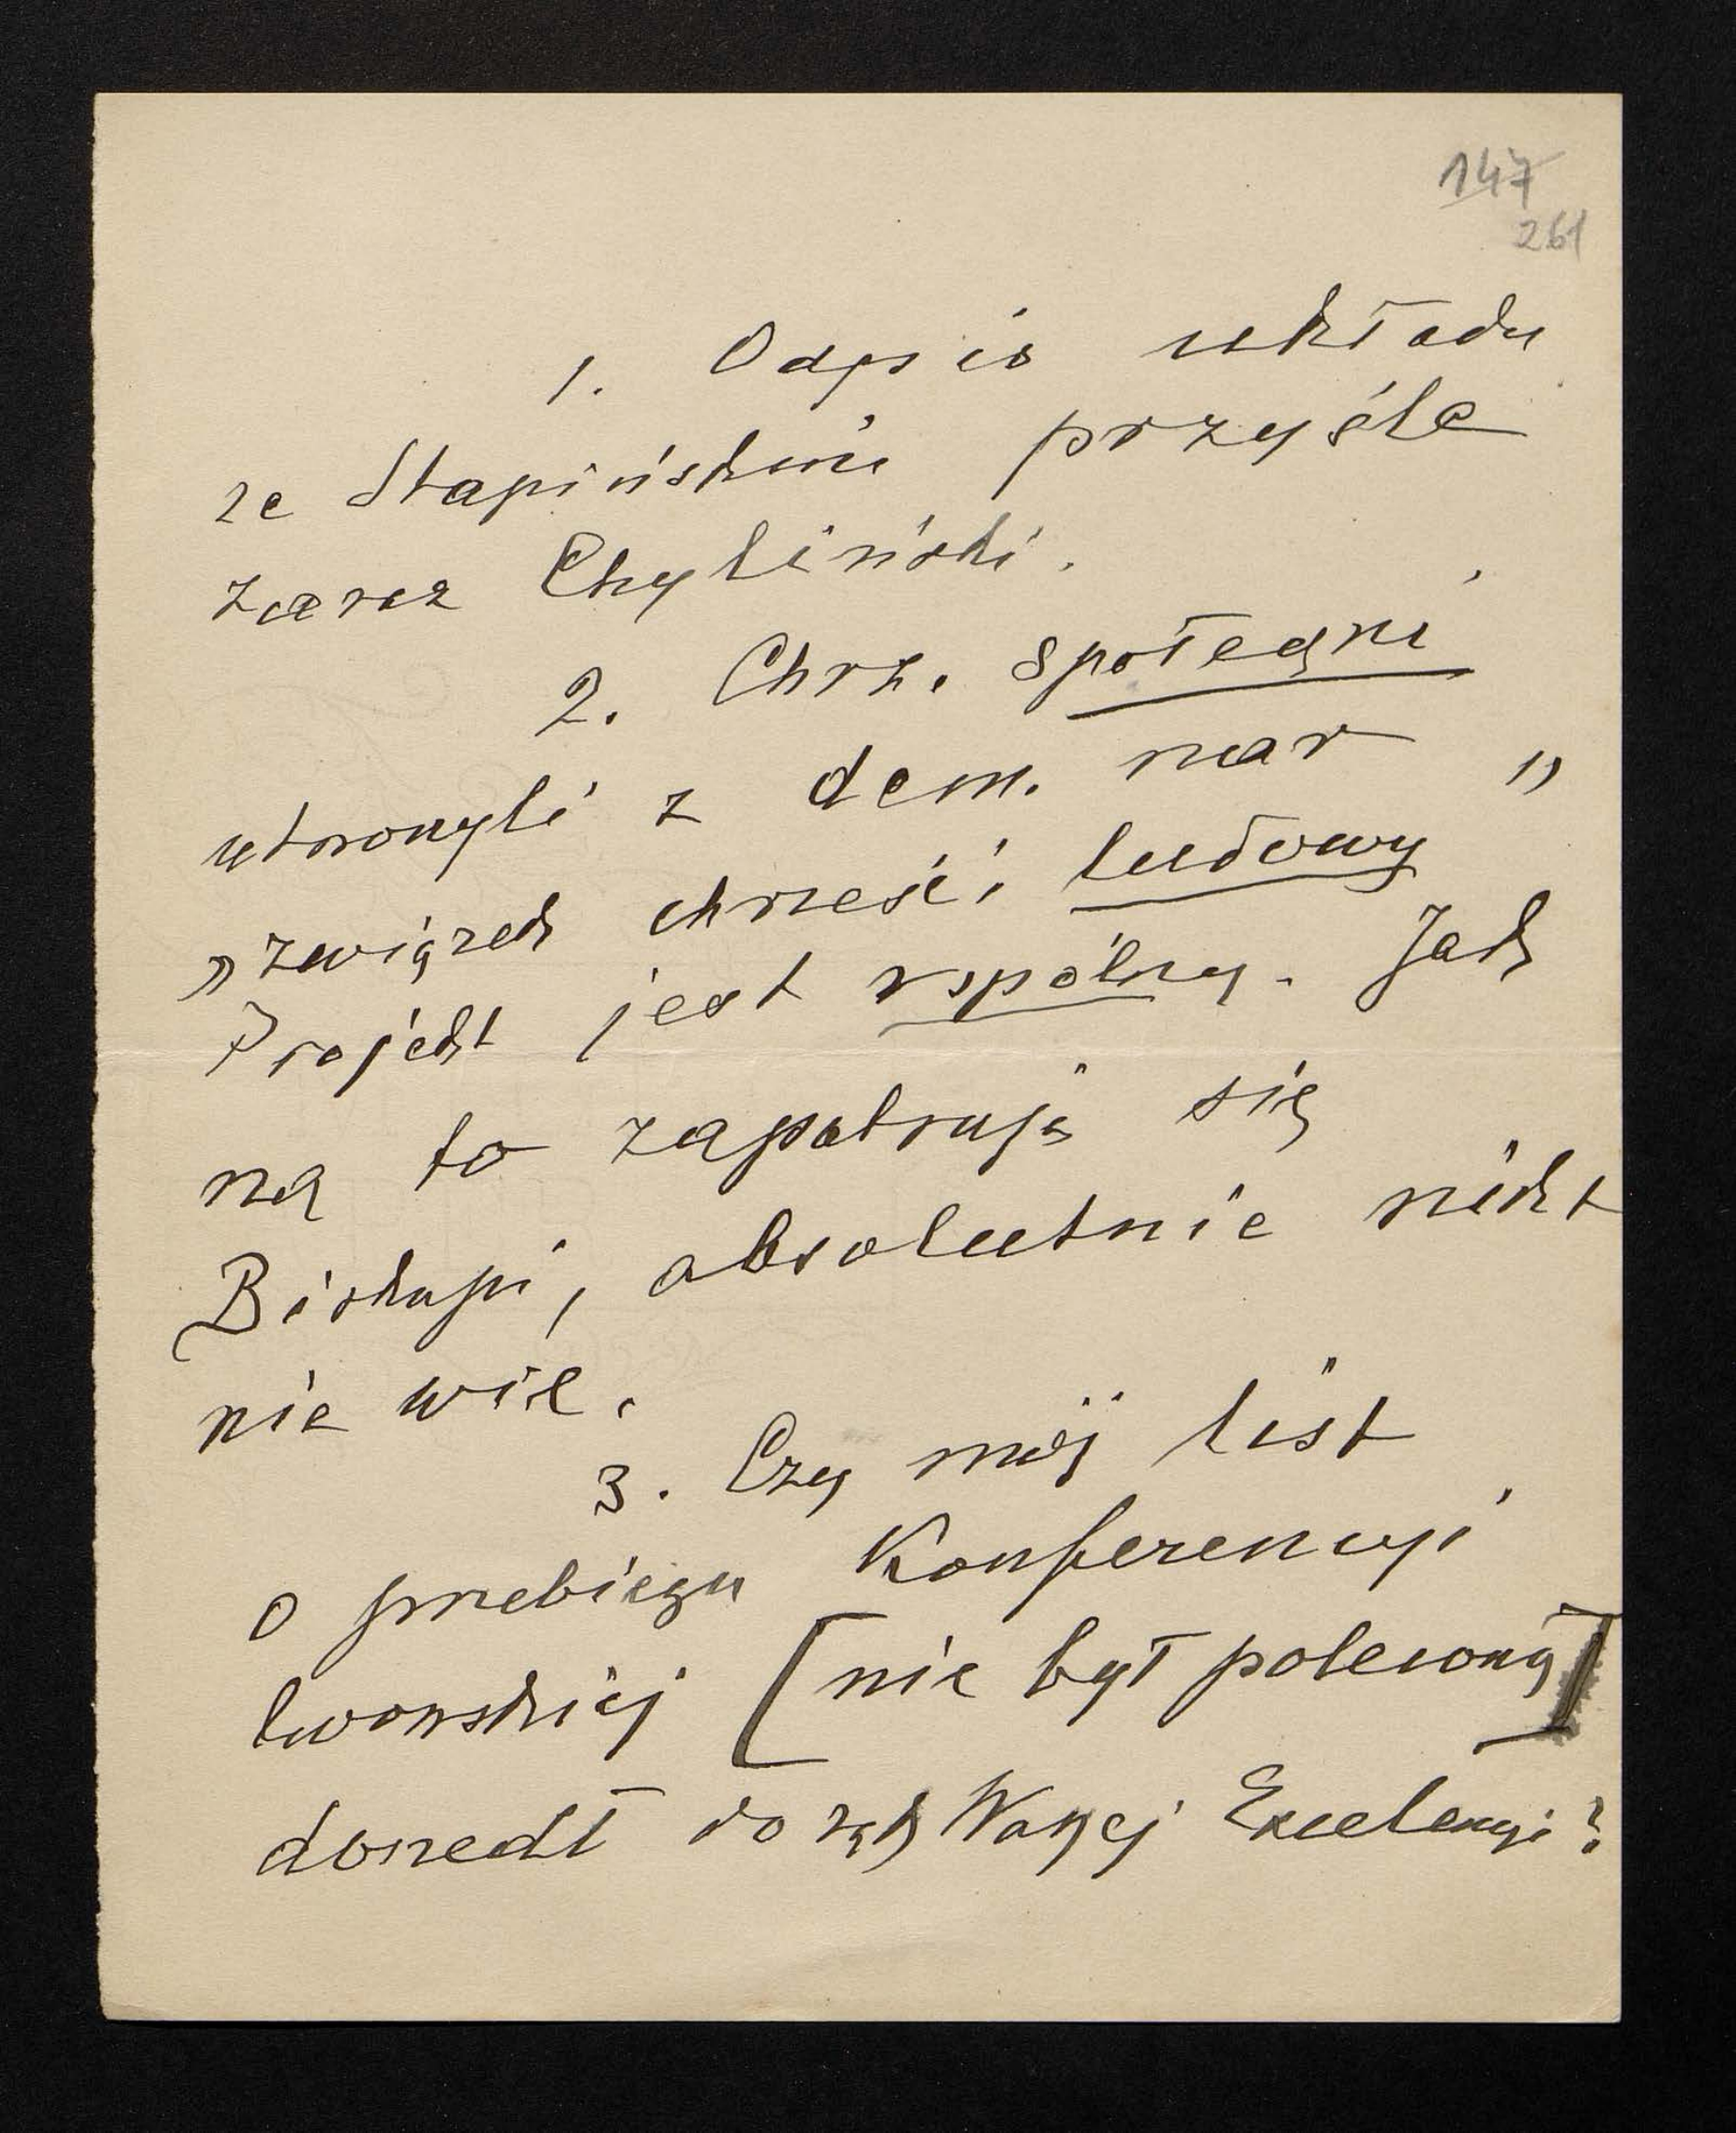 147
261
1. Odpis układu
ze Stapińskim prześle
zaraz Chyliński.
2. Chrz. społeczni
utworzyli z dem. nar
„związek chrześci ludowy"
Projekt jest wspólny. Jak
na to zapatrują się
Biskupi, absolutnie nikt
nie wie.
3. Czy mój list
o przebiegu Konferencyi
lwowskiej [nie był polecony]
doszedł do rąk Waszej Excelencyi?